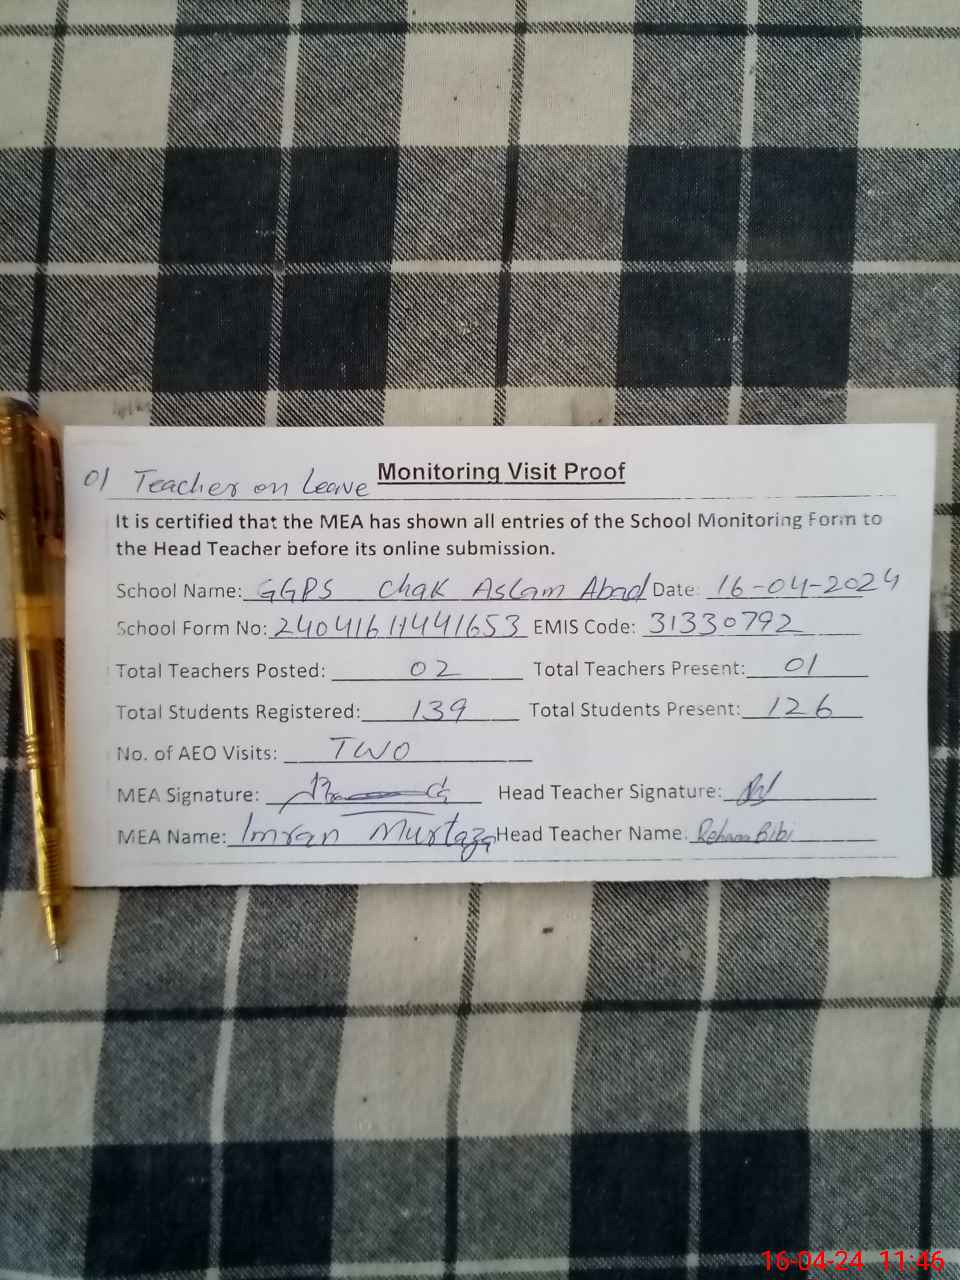 01 Teacher on Leave Monitoring Visit Proof
It is certified that the MEA has shown all entries of the School Monitoring Form to
the Head Teacher before its online submission.
School Name: GGPS Chak Aslam Abad Date: 16-04-2024
School Form No: 24041611441653 EMIS Code: 31330792
Total Teachers Posted: 02 Total Teachers Present: 01
Total Students Registered: 139 Total Students Present: 126
No. of AEO Visits: TWO
MEA Signature: Head Teacher Signature:
MEA Name: Imran Murtaza Head Teacher Name: Rehana Bibi
16-04-24 11:46